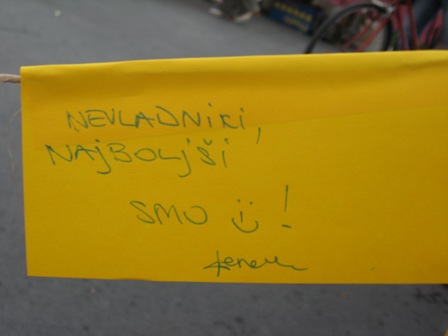 NEVLADNIKI,
NAJBOLJŠI
SMO ☺!